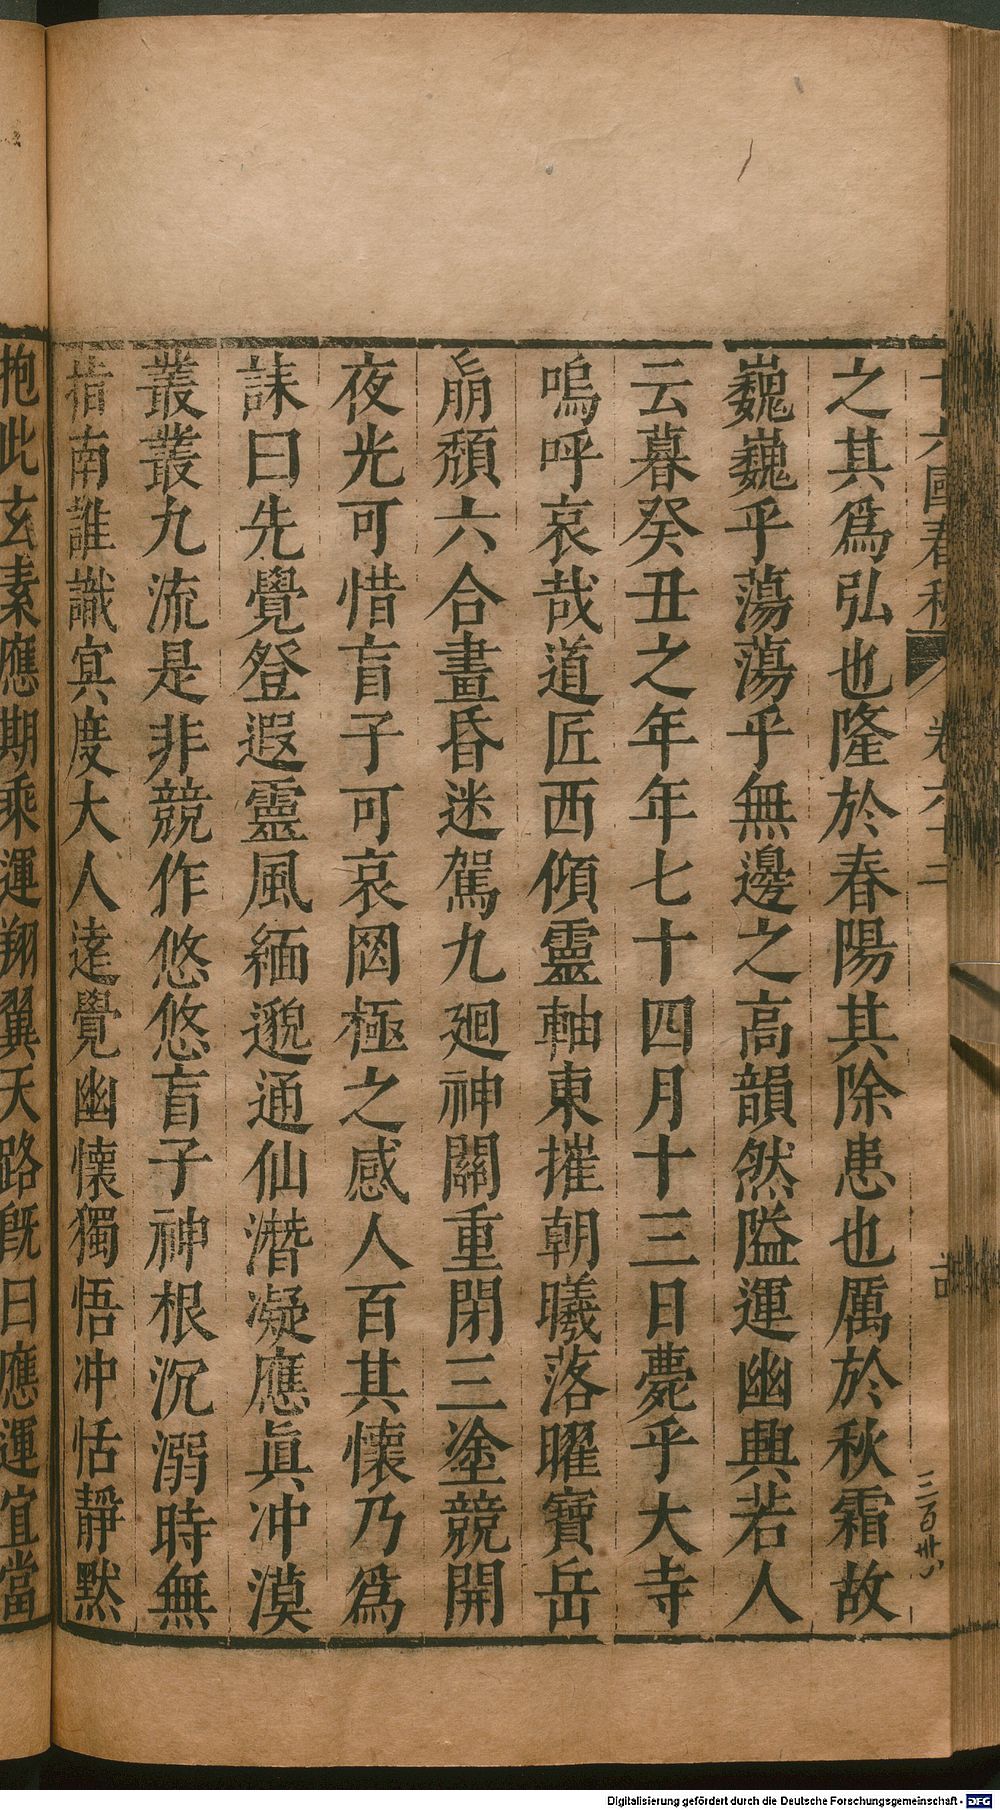 十六國春秋 卷六十二
三百卅八
之其爲弘也隆於春陽其除患也厲於秋霜故
巍巍乎蕩蕩乎無邊之高韻然隘運幽興若人
云暮癸丑之年年七十四月十三日薨乎大寺
嗚呼哀哉道匠西傾靈軸東摧朝曦落曜寶岳
崩頹六合晝昏迷駕九廻神關重閉三塗競開
夜光可惜盲子可哀罔極之感人百其懷乃爲
誄曰先覺登遐靈風緬邈通仙潛凝應眞冲漠
叢叢九流是非競作悠悠盲子神根沉溺時無
指南誰識宾度大人逹覺幽懷獨悟冲恬靜默
抱此玄素應期乘運翔翼天路旣曰應運宜當
Digitalisierung gefördert durch die Deutsche Forschungsgemeinschaft - DFG